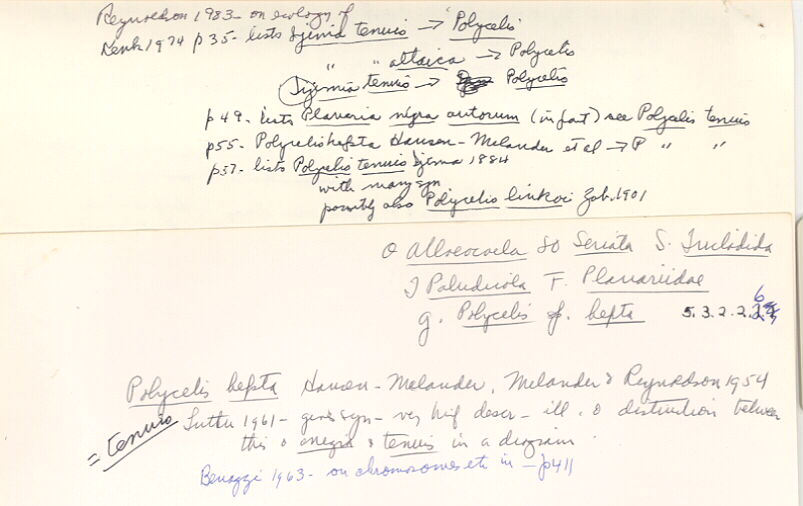 Reynoldson 1983 - on ecology of
Kenk 1974 p 35 - lists Ijimia tenuis → Polycelis
" " altaica → Polycelis
Ijimia tenuis → Polycelis
p 49 - lists Planaria nigra autorum (in part) see Polycelis tenuis
p55 - Polycelis hepta Hansen-Melander et al → P " "
p57 - lists Polycelis tenuis Ijima 1884
with many syn.
possibly also Polycelis linkoi Zab. 1901
O Alloeocoela SO Seriata S. Tricladida
I Paludicola F. Planariidae
g. Polycelis sp. hepta 5.3.2.2.
Polycelis hepta Hansen-Melander, Melander & Reynoldson 1954
= tenuis
Luther 1961 - gives syn - very brief descr - ill. & distinction between
this & nigra & tenuis in a diagram.
Benazzi 1963 - on chromosomes etc in - p411